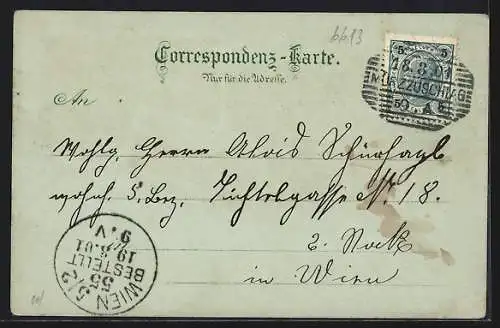 6613
Correspondenz-Karte.
Nur für die Adresse.
5 5
18.8.01
MÜRZZUSCHLAG
An
Wohlg. Herrn Alois
wohnh. 5. Bez. No. 18.
2. Stock
in Wien
WIEN 5/2
55
BESTELLT
19.8.01
9.V